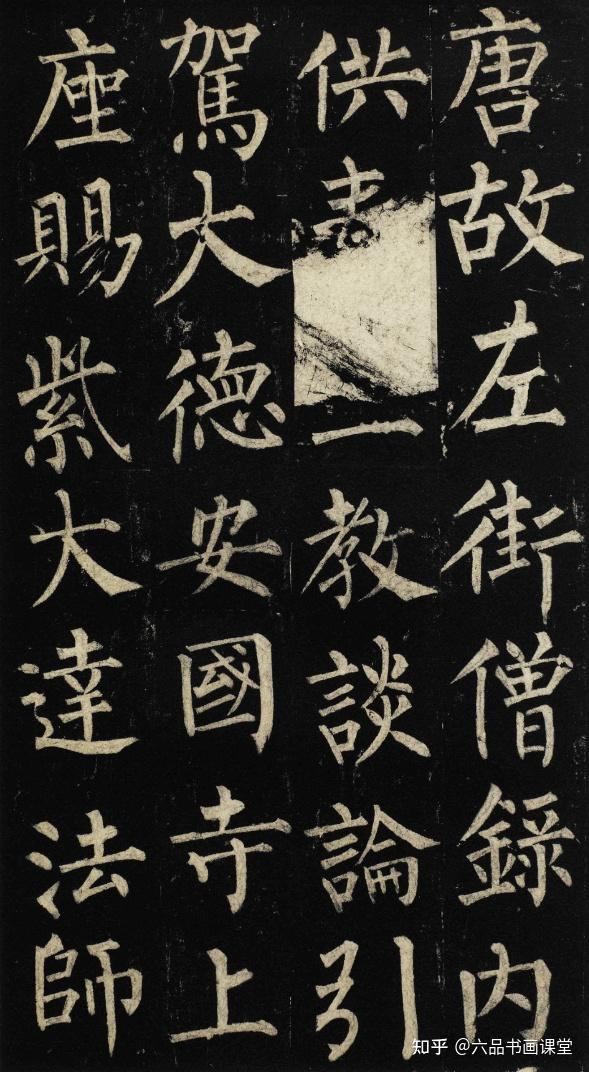 唐故左街僧錄内
供教談論引
駕大德安國寺上
座賜紫大達法師
知乎 @六品书画课堂